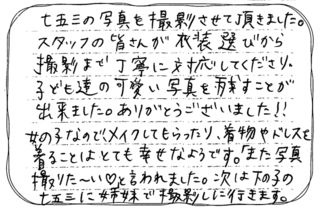 七五三の写真を撮影させて頂きました。
スタッフの皆さんが衣装選びから
撮影まで丁寧に対応してくださり、
子ども達の可愛い写真を残すことが
出来ました。ありがとうございました!!
女の子なので、メイクしてもらったり、着物やドレスを
着ることはとても幸せなようです。「また写真
撮りた〜い♡と言われました。次は下の子の
七五三に姉妹で撮影しに行きます。